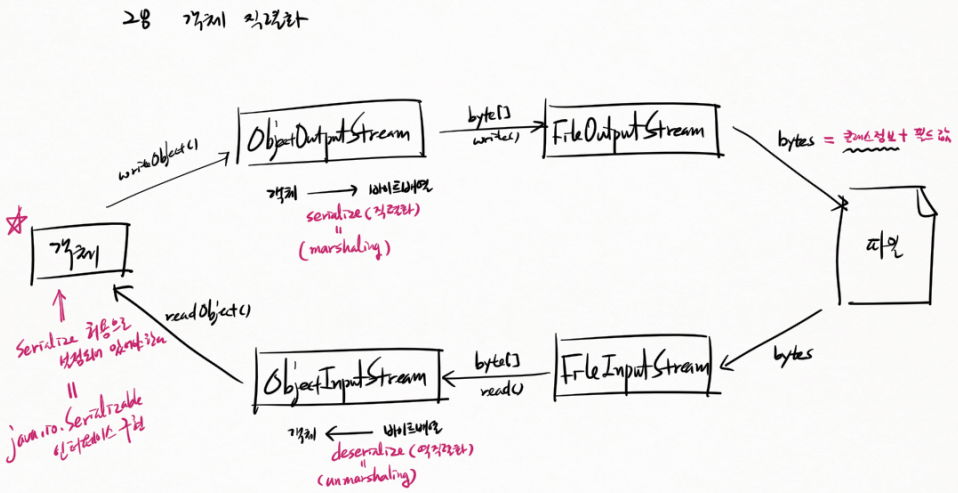 28 객체 직렬화
writeObject()
ObjectOutputStream
byte[]
write()
FileOutputStream
bytes = 클래스정보 + 필드 값
객체 → 바이트배열
serialize (직렬화)
=
(marshaling)
객체
파일
serialize 허용으로
설정되어 있어야 한다
=
java.io.Serializable
인터페이스 구현
readObject()
ObjectInputStream
byte[]
read()
FileInputStream
bytes
객체 ← 바이트배열
deserialize (역직렬화)
=
(unmarshaling)